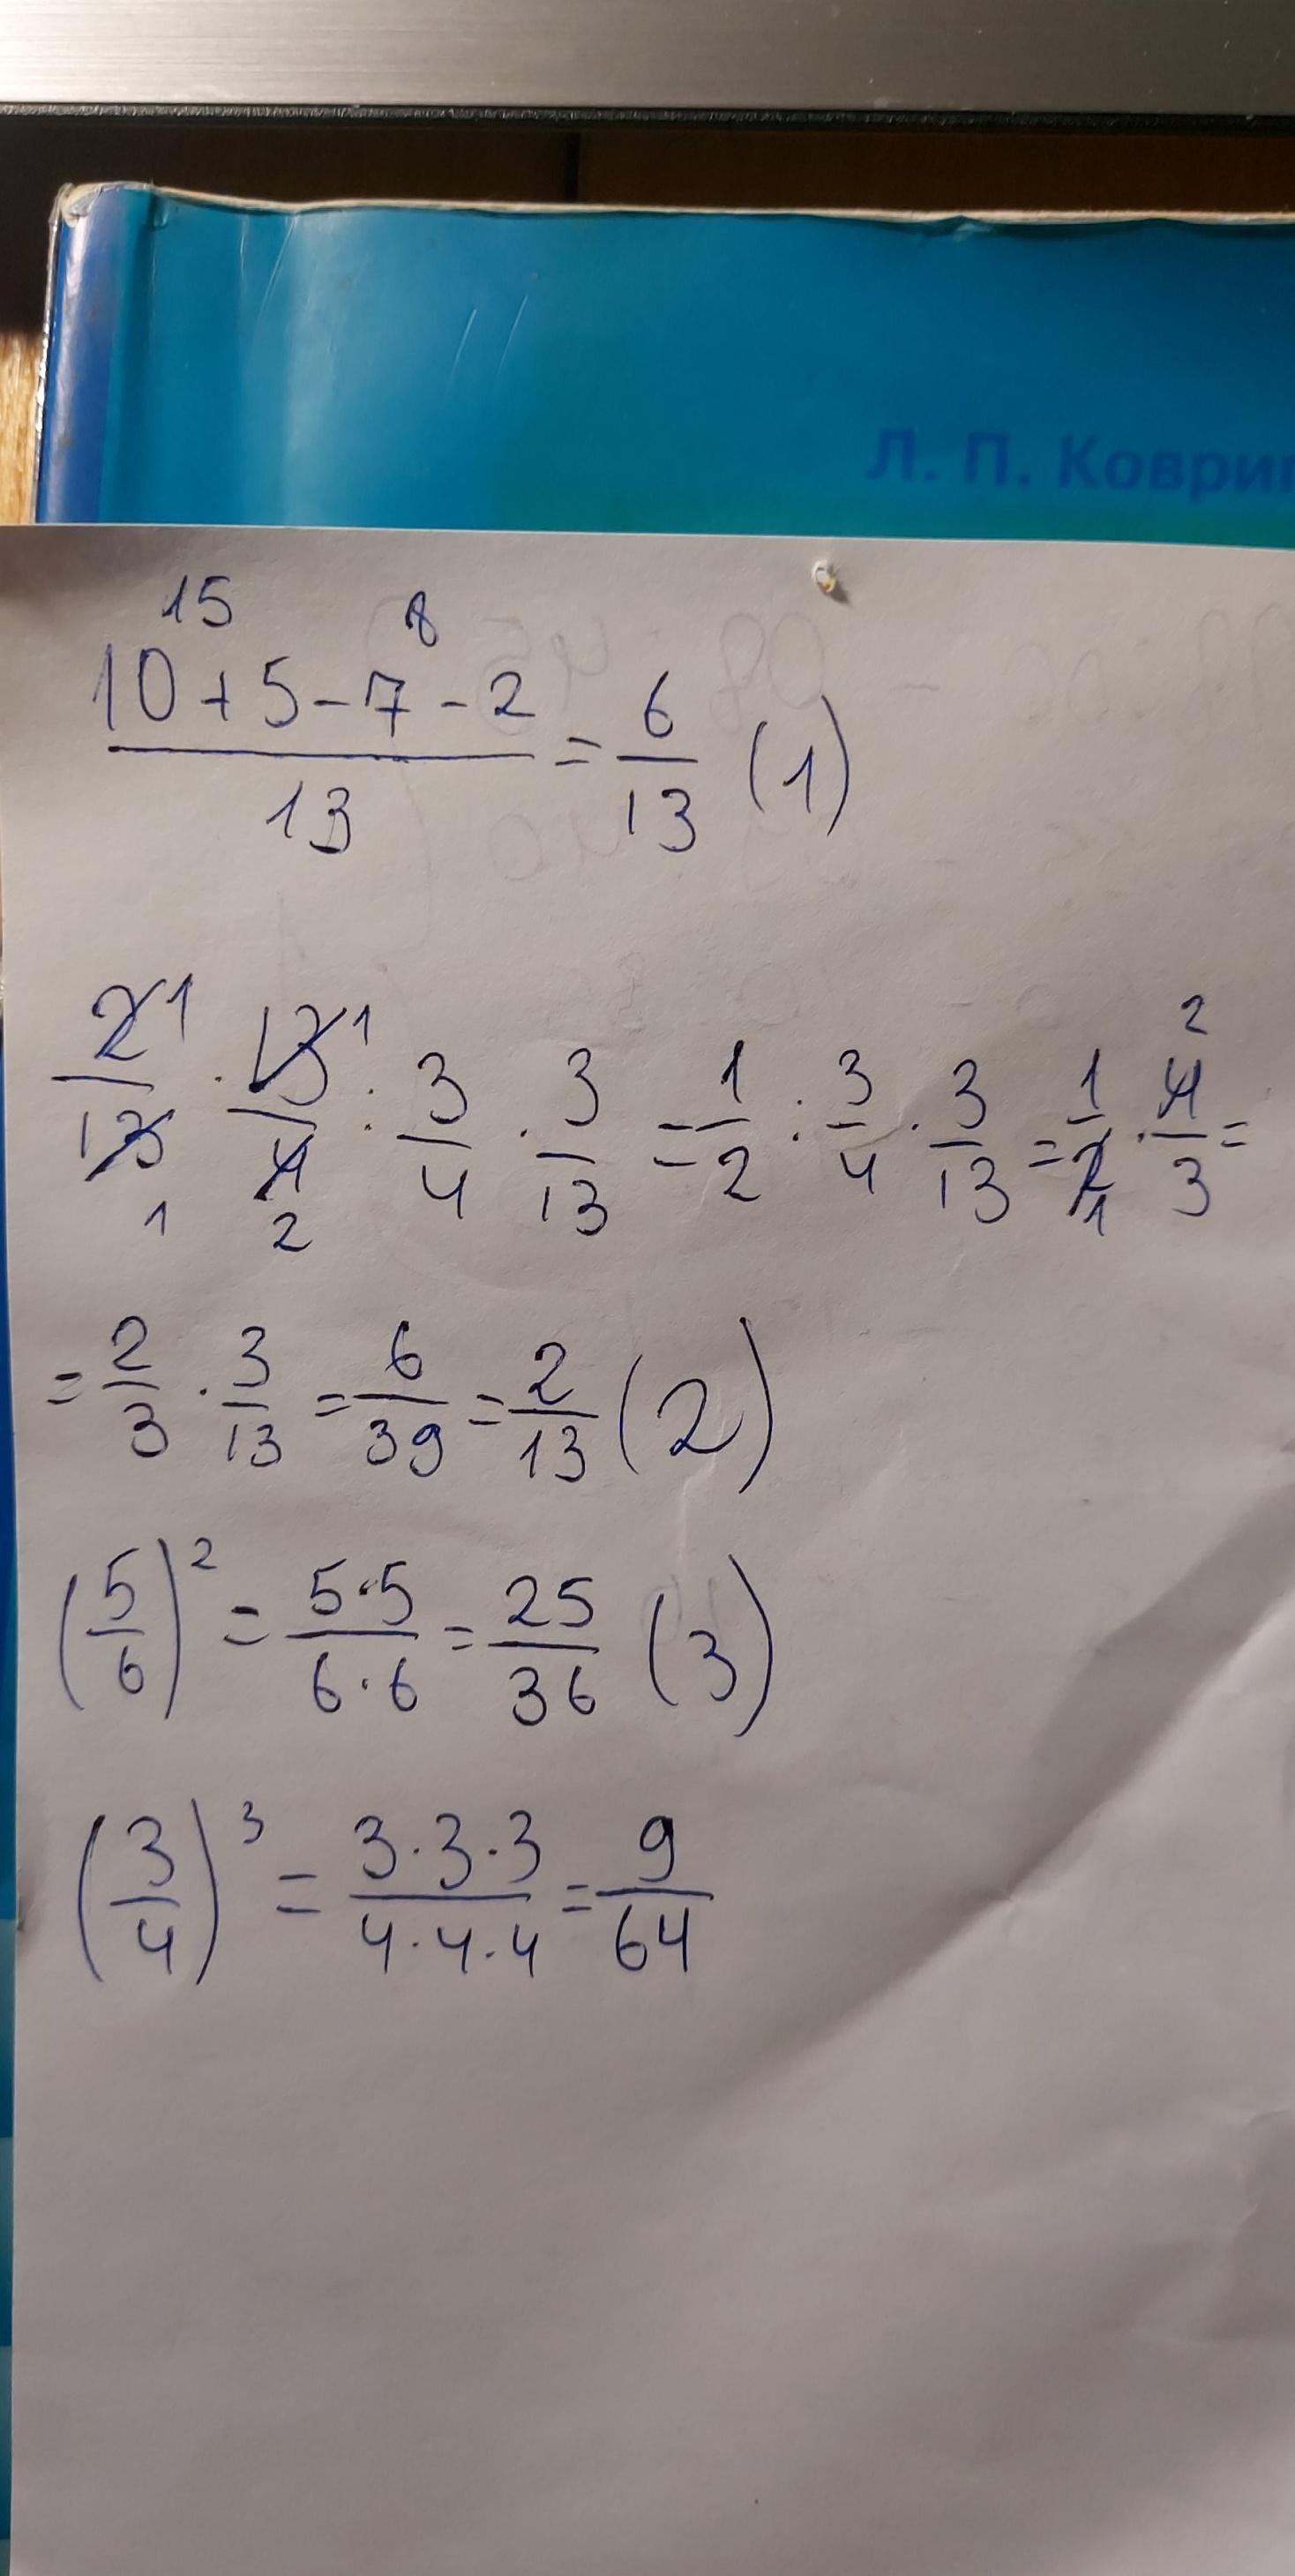 Л. П. Коври
15 8
(10 + 5 - 7 - 2)/13 = 6/13 (1)
2/13 · 13/4 : 3/4 · 3/13 = 1/2 : 3/4 · 3/13 = 1/2 · 4/3 =
= 2/3 · 3/13 = 6/39 = 2/13 (2)
(5/6)² = (5·5)/(6·6) = 25/36 (3)
(3/4)³ = (3·3·3)/(4·4·4) = 9/64